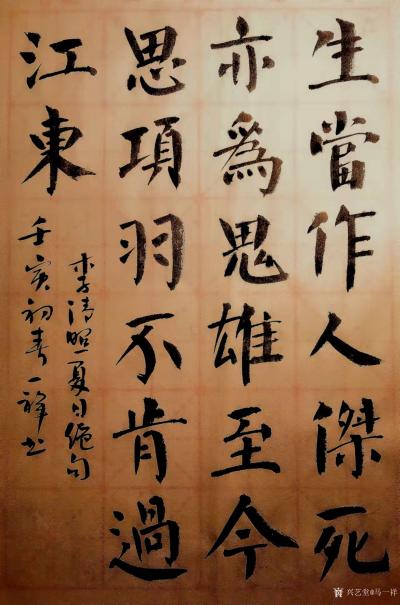 生當作人傑死
亦爲鬼雄至今
思項羽不肯過
江東
李清照夏日绝句
壬寅初春一祥书
兴艺堂@马一祥